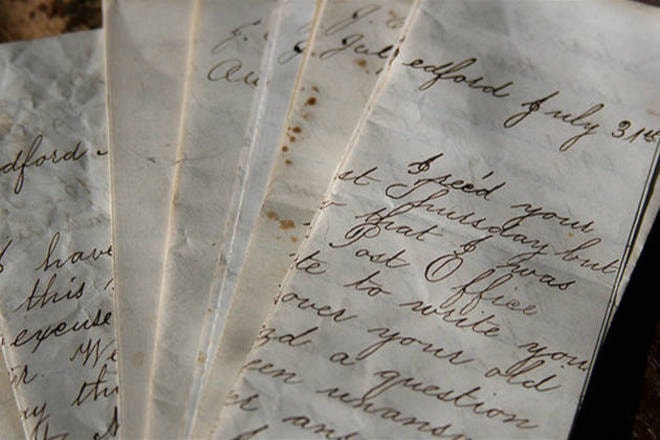 dford
I have
this
excuse
r. We
ay th
J. 
Au
J.
Jul
edford July 31st
I rec'd your
st Thursday but
that I was
Post Office
te to write you
over your old
nd a question
een unansw
er an